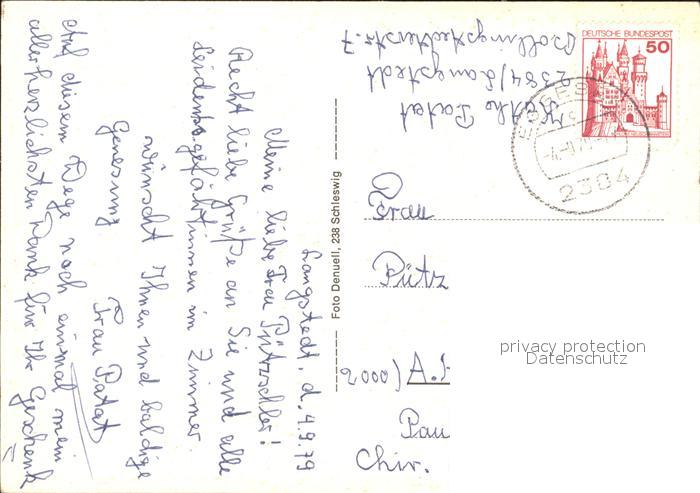 Langstedt, d. 4.9.79
Meine liebe Frau Pützschler!
Recht liebe Grüße an Sie und alle
Leidensgefährtinnen im Zimmer.
wünscht Ihnen und baldige
Genesung
Frau Patat
Auf diesem Wege noch einmal mein
allerherzlichsten Dank für Ihr Geschenk
Foto Denuell, 238 Schleswig
Käthe Patat
2384/Langstedt
Bollingstedterstr. 7
DEUTSCHE BUNDESPOST
50
2384
Frau
Pütz
2000) A.
Pau
Chir.
privacy protection
Datenschutz